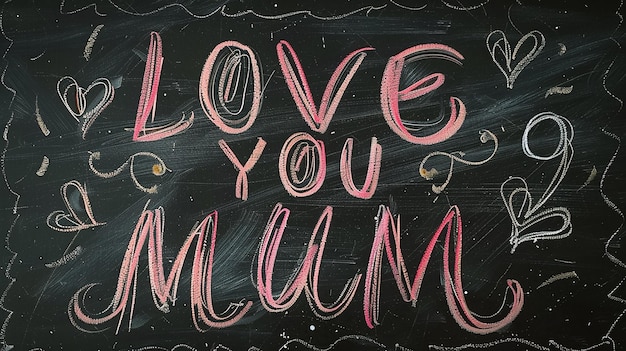 LOVE
YOU
MUM